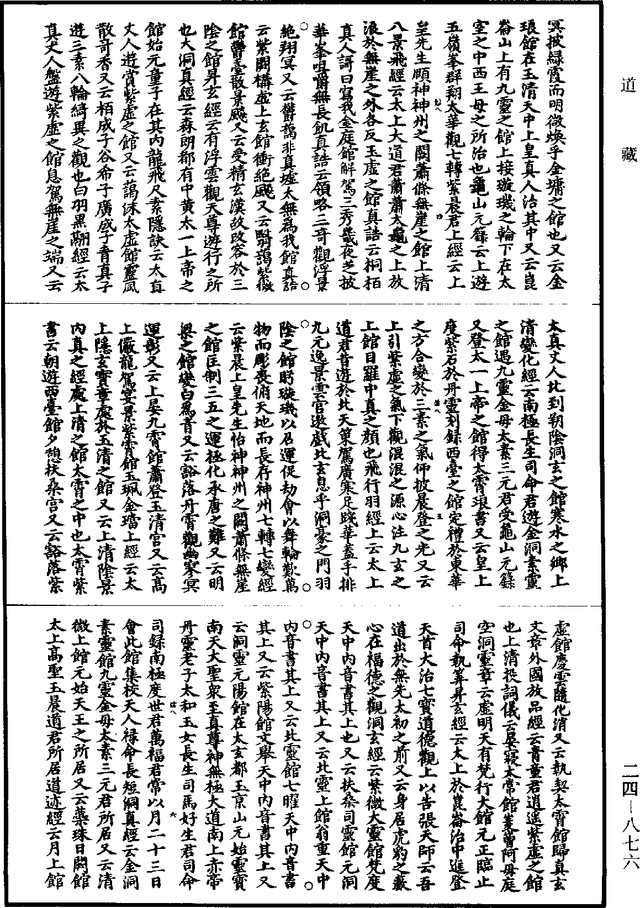 道藏
冥披綠霞而明微煥乎金墉之館也又云金
琅館在玉清天中上皇真人治其中又云崑
崙山上有九靈之館上接璇璣之輪下在太
空之中西王母之所治也龜山元籙云上遊
五嶺峯群翔太華觀七轉紫晨君上經云上
皇先生頤神神州之闕蕭條無崖之館上清
八景飛經云太上大道君蕭蕭太龜之上放
浪於無崖之外各反玉虛之館真誥云桐栢
真人謌曰寫我金庭館解駕三秀畿夜芝披
華峯咀嚼無長飢真誥云領略三奇觀浮景
絕翔冥又云欝藹非真墟太無為我館真誥
云紫闕構虛上玄館衝絕飈又云翳藹紫微
館欝臺散景飈又云受精玄漢故改容於三
陰之館昇玄經云有浮雲觀天尊遊行之所
也大洞真經云森朗都有中黄太一上帝之
館始元童子在其內龍飛尺素隱訣云太真
丈人遊賞紫虛之館又云藹沫太虛館靈風
散奇香又云栢成子谷希子廣成子青真子
遊三素八輪綺異之觀也白羽黑翮經云太
真丈人盤遊紫虛之館息駕無崖之端又云
太真丈人北到朔陰洞玄之館寒水之鄉上
清變化經云南極長生司命君遊金洞素靈
之館遇九靈金母太素三元君受龜山元籙
又登太一上帝之館得太霄琅書又云皇上
度紫石於丹靈刻録西臺之館定禮於東華
之方合變於二素之氣仰披晨登之先又云
上引紫虛之氣下觀混混之源心注九玄之
上館目羅中真之顏也飛行羽經上云太上
道君昔遊於此天策駕廣寒足踐華蓋手排
九元逸景雲宫遨戲北玄息乎洞臺之門羽
陰之館眄璇璣以召運促劫會以舞輪歎萬
物而彫喪俯天地而長存神州七轉七變經
云紫晨上皇先生怡神神州之闕蕭條無崖
之館匡制三五之運極化承唐之難又云明
梁之館變白爲青又云豁落丹霄觀幽聚冥
運彰又云上晏九霄館蕭登玉清宫又云高
上儼龍駕雲景紫霄館玉珮金璫上經云太
上隱玄寶章處於玉清之館又云上清隂景
内真之經處上清之館太霄之中也太霄琅
書云朝遊西臺館夕憇扶桑宫又云豁落紫
虛館慶雲隨化消又云執契太霄館歸真玄
文章外國放品經云青童君逍遥紫虛之館
也上清投詞儀云晏寢太常館美曾阿母庭
空洞靈章云虛明天有梵行大館元正臨止
司命執筭昇玄經云太上於崑崙治中進登
天首大治七寶道德觀上以告張天師云吾
道出於無先太初之前又云身居虎豹之藪
心在福德之觀洞玄經云紫微大靈館梵度
天中内音書其上也又云扶桑司靈館元洞
天中内音書其上又云比靈上館翁重天中
内音書其上又云比靈館七曜天中内音書
其上又云紫陽館文舉天中内音書其上又
云洞靈元陽館在太玄都玉京山元始靈寶
南天大聖衆至真尊神無極大道南上赤帝
丹靈老子太和玉女長生司馬好生君司命
司録南極度世君萬福君常以月二十三日
會此館集校天人禄命長短洞真經云金洞
素靈館九靈金母太素三元君所居又云清
微上館元始天王之所居又云蘂珠日闕館
太上高聖玉晨道君所居道迹經云月上館
二四—八七六